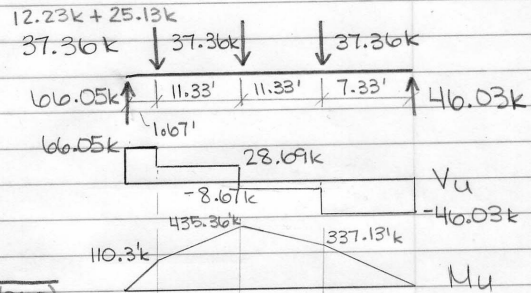 12.23k + 25.13k
37.36k 37.36k 37.36k
66.05k 11.33' 11.33' 7.33' 46.03k
1.67'
66.05k 28.69k
-8.67k Vu
-46.03k
435.36'k
110.3'k 337.13'k
Mu